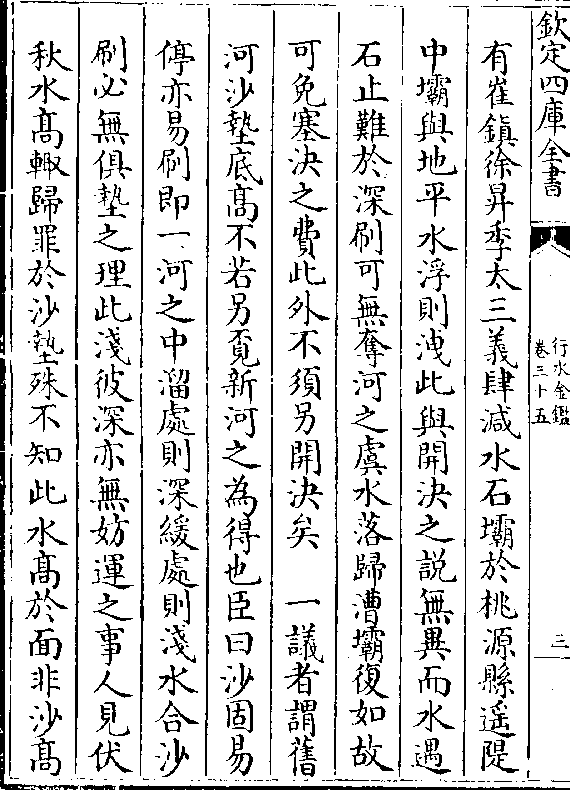 欽定四庫全書
行水金鑑
卷三十五
三
有崔鎮徐昇季太三義肆減水石壩於桃源縣遥隄
中壩與地平水浮則洩此與開決之説無異而水遇
石止難於深刷可無奪河之虞水落歸漕壩復如故
可免塞決之費此外不須另開決矣　一議者謂舊
河沙墊底髙不若另覔新河之為得也臣曰沙固易
停亦易刷即一河之中溜處則深緩處則淺水合沙
刷必無俱墊之理此淺彼深亦無妨運之事人見伏
秋水髙輙歸罪於沙墊殊不知此水髙於面非沙髙